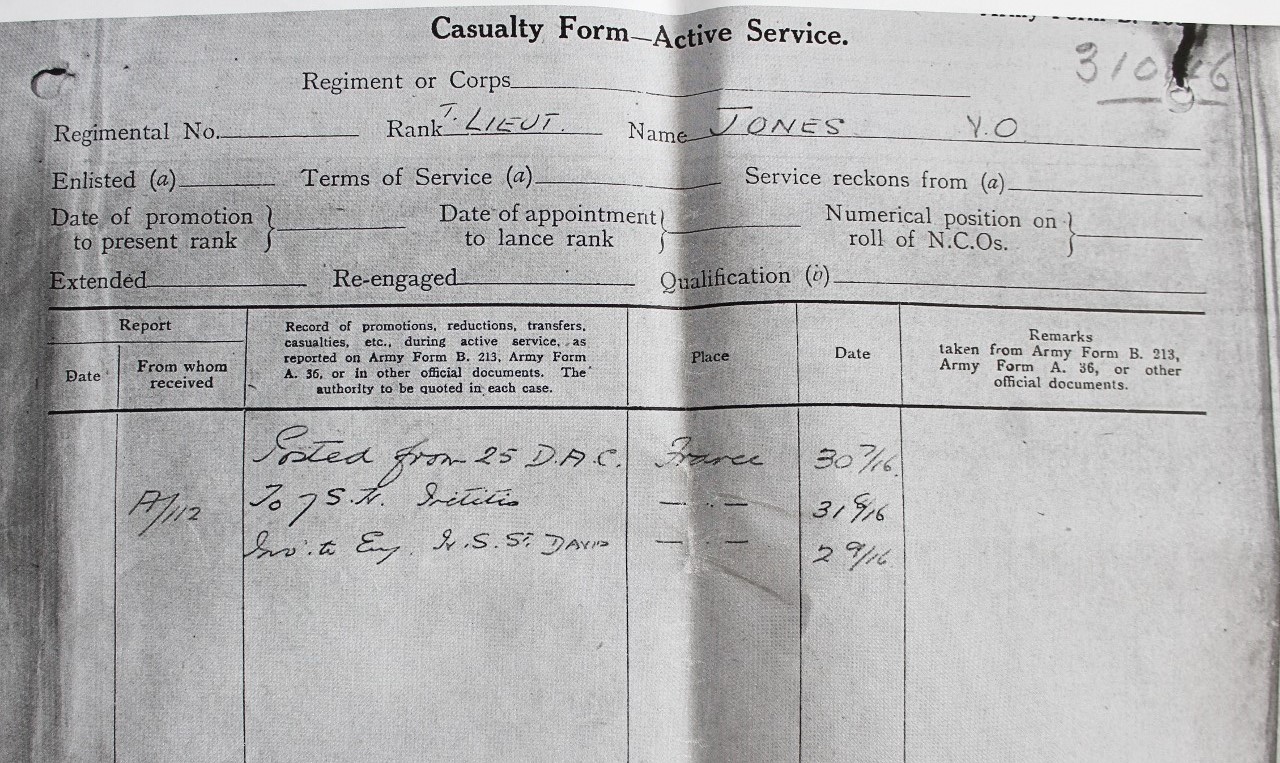 Casualty Form—Active Service.
Regiment or Corps
Regimental No. Rank T. LIEUT. Name JONES Y.O
Enlisted (a) Terms of Service (a) Service reckons from (a)
Date of promotion to present rank } Date of appointment to lance rank } Numerical position on roll of N.C.Os. }
Extended Re-engaged Qualification (b)
Report
Date
From whom received
Record of promotions, reductions, transfers, casualties, etc., during active service, as reported on Army Form B. 213, Army Form A. 36, or in other official documents. The authority to be quoted in each case.
Place
Date
Remarks taken from Army Form B. 213, Army Form A. 36, or other official documents.
Posted from 25 D.A.C. France 30 7/16.
A/112 To 7 S. H. — . — 31 8/16
Inv. to Eng. H.S. St DAVID — . — 2 9/16